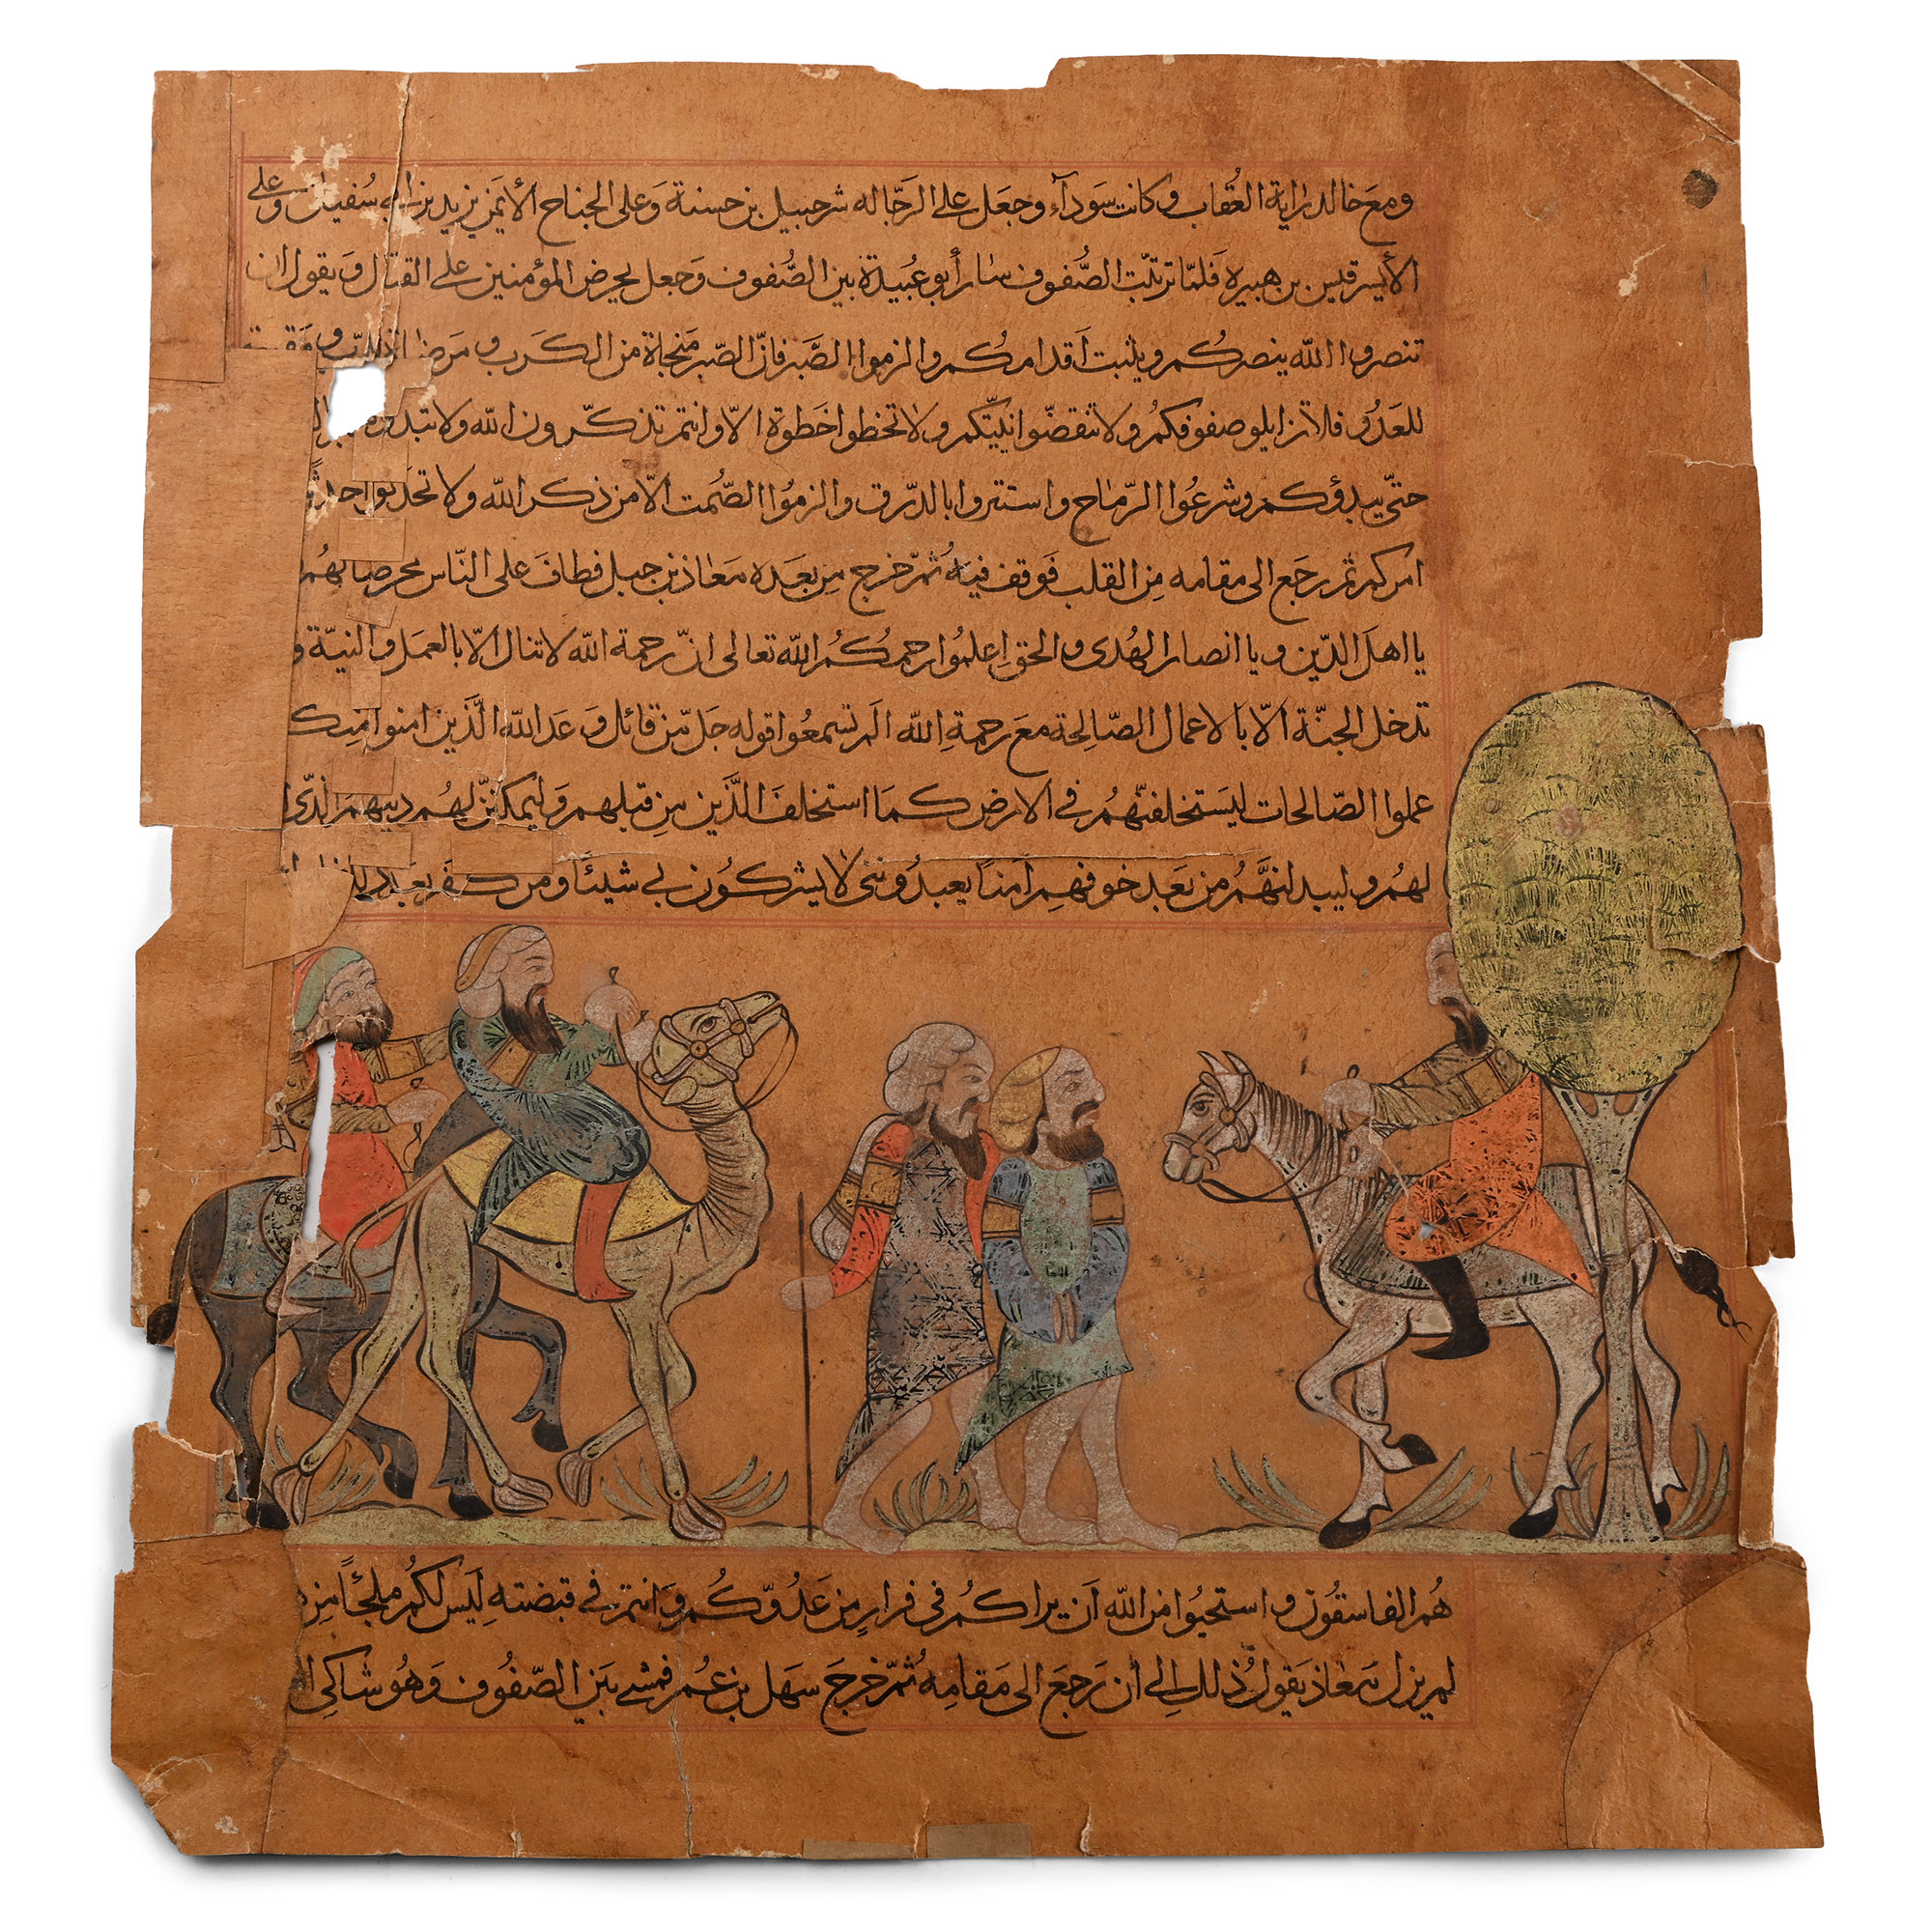 ومع خالد راية العُقاب وكانت سَودآء وجعل على الرَجّاله شرحبيل بن حسنة وَعلى الجناح الأيمَن يزيد بن ابي سُفيان وعلى
الأيسر قيس بن هبيره فَلمّا ترتبّت الصُّفوف سار أبو عُبيدة بين الصُّفوف وَجعل يحرض المؤمنين على القتال وَيقول ان
تنصروا الله ينصركُم ويثبت أقدامكُم والزموا الصَّبر فانّ الصّبر مَنجاة من الكَرب و
للعَدُو فلا تزايلو صفوفكمُ ولا تنقضّوا نيّتكم ولا تخطوا خَطوة الّا وانتم تذكّرون الله ولا
حتّى يبدؤكم وشرعُوا الرّماح واستتروا بالدرق والزمُوا الصُّمت الّا من ذكر الله ولا
امركم ثم رجَع الى مقامه مِن القلب فَوقف فيهُ ثمّ خرج مِن بعَده مَعاذ بن جبل فطافَ على النّاس
يا اهلَ الدّين ويا انصار الهُدى والحق اِعلمُوا رحمكُمُ الله تعالى انّ رحمة الله لا تنال الّا بالعمَل والنيّة و
تدخل الجنّة الّا بالاعمال الصّالِحة معَ رحمةِ الله الَم تسمعُوا قوله جَل مّن قائل وَعَد الله الَّذين امنوا مِنك
عملوا الصّالحات ليَستخلفنّهُم في الارض كمَا استخلفَ الَّذين مِن قبلهم وَليمكننّ لهُم دينهم الّذى
لهُم وليبدلنهَّمُ من بَعَد خوفهِم اَمناً يعبدُوننى لا يشركوُن بي شيئاً ومن كفَر بعَد ذلك
هُم الفاسقوُن واستحيُوا من الله اَن يراكمُ فى فرارٍ من عَدُوّكُم وَانتم في قبضته لَيس لكمُ ملجئاً مِن
لم يزل مَعاذ يَقول ذُلك الى أن رَجعَ الى مَقامِهُ ثمّ خرجَ سَهل بن عمُر فمشى بَين الصّفوُف وَهُو شاكى ا